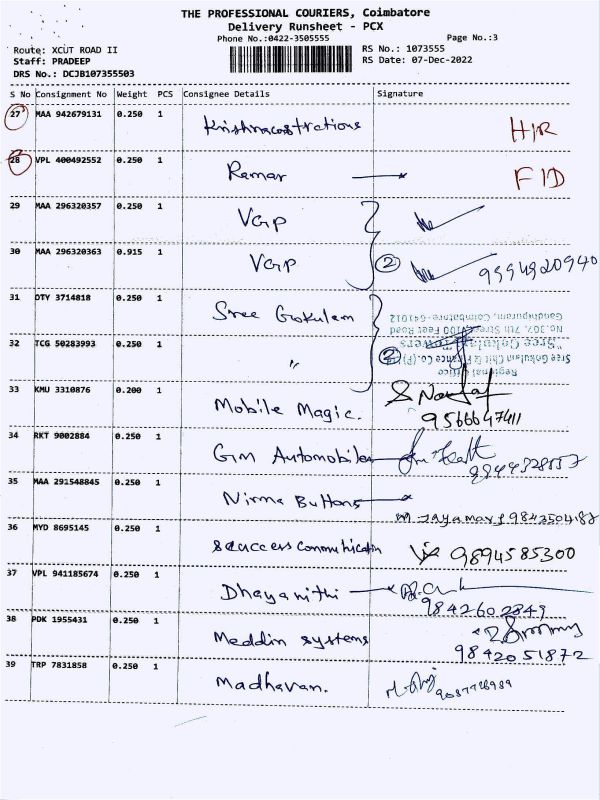 THE PROFESSIONAL COURIERS, Coimbatore
Delivery Runsheet - PCX
Phone No.:0422-3505555
Page No.:3
Route: XCUT ROAD II
RS No.: 1073555
Staff: PRADEEP
RS Date: 07-Dec-2022
DRS No.: DCJB107355503
S No Consignment No Weight PCS Consignee Details Signature
27 MAA 942679131 0.250 1
28 VPL 400492552 0.250 1 Ramar FID
29 MAA 296320357 0.250 1 VGP
30 MAA 296320363 0.915 1 VGP 2 9994920940
31 DTY 3714818 0.250 1 Sree Gokulam
32 TCG 50283993 0.250 1 "
Regional Office
Sree Gokulam Chit & Finance Co. (P) Ltd
"Sree Gokulam Towers
No.307, 7th Street, 100 Feet Road
Gandhipuram, Coimbatore-641012
33 KMU 3310876 0.200 1 Mobile Magic.
9566647411
34 RKT 9002884 0.250 1 Gm Automobiles
35 MAA 291548845 0.250 1 Nirma Buttons
36 MYD 8695145 0.250 1 9894585300
37 VPL 941185674 0.250 1 Dhayanithi
9842602849
38 PDK 1955431 0.250 1 Meddin systems
9842051872
39 TRP 7831858 0.250 1 Madhavan.